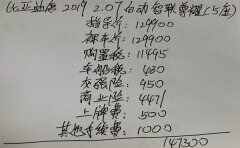 比亚迪唐 2019 2.0T 自动智联尊耀(5座)
指导价: 129900
裸车价: 129900
购置税: 11495
车船税: 480
交强险: 950
商业险: 4471
上牌费: 500
其他手续费: 1000
147300